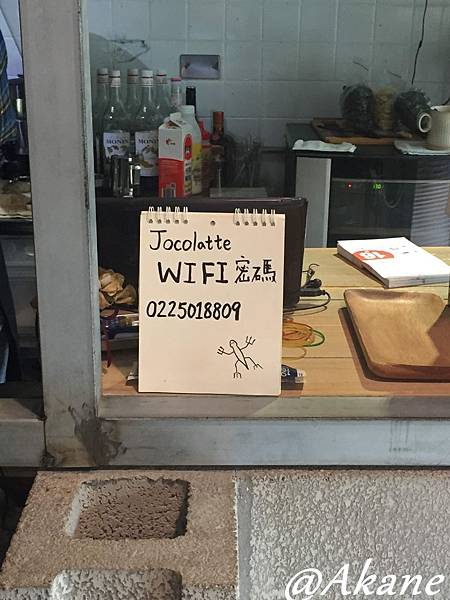 MONIN
MONIN
Jocolatte
WIFI 密碼
0225018809
18
@Akane